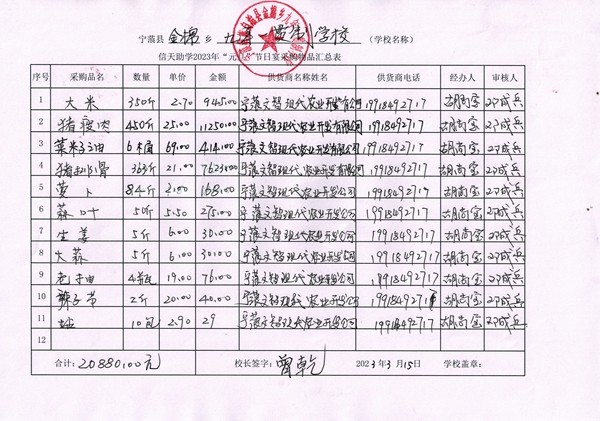 宁蒗县 金棉 乡 九年一贯制学校 （学校名称）
信天助学2023年“元旦”节日宴采购物品汇总表
序号 采购品名 数量 单价 金额 供货商名称姓名 供货商电话 经办人 审核人
1 大米 350斤 2.70 945.00 宁蒗文智现代农业开发有限公司 19918492717 胡尚宝 成兵
2 猪瘦肉 450斤 25.00 11250.00 宁蒗文智现代农业开发有限公司 19918492717 胡尚宝 成兵
3 菜籽油 6桶 69.00 414.00 宁蒗文智现代农业开发有限公司 19918492717 胡尚宝 成兵
4 猪排骨 363斤 21.00 7623.00 宁蒗文智现代农业开发有限公司 19918492717 胡尚宝 成兵
5 萝卜 84斤 2.00 168.00 宁蒗文智现代农业开发公司 19918492717 胡尚宝 成兵
6 蒜叶 50斤 5.50 275.00 宁蒗文智现代农业开发公司 19918492717 胡尚宝 成兵
7 生姜 5斤 6.00 30.00 宁蒗文智现代农业开发公司 19918492717 胡尚宝 成兵
8 大蒜 5斤 6.00 30.00 宁蒗文智现代农业开发公司 19918492717 胡尚宝 成兵
9 老抽 4瓶 19.00 76.00 宁蒗文智现代农业开发公司 19918492717 胡尚宝 成兵
10 辣子 2斤 20.00 40.00 宁蒗文智现代农业开发公司 19918492717 胡尚宝 成兵
11 盐 10包 2.90 29 宁蒗文智现代农业开发公司 19918492717 胡尚宝 成兵
12
合计：20880.00元 校长签字：曾乾 2023年3月15日 学校盖章：